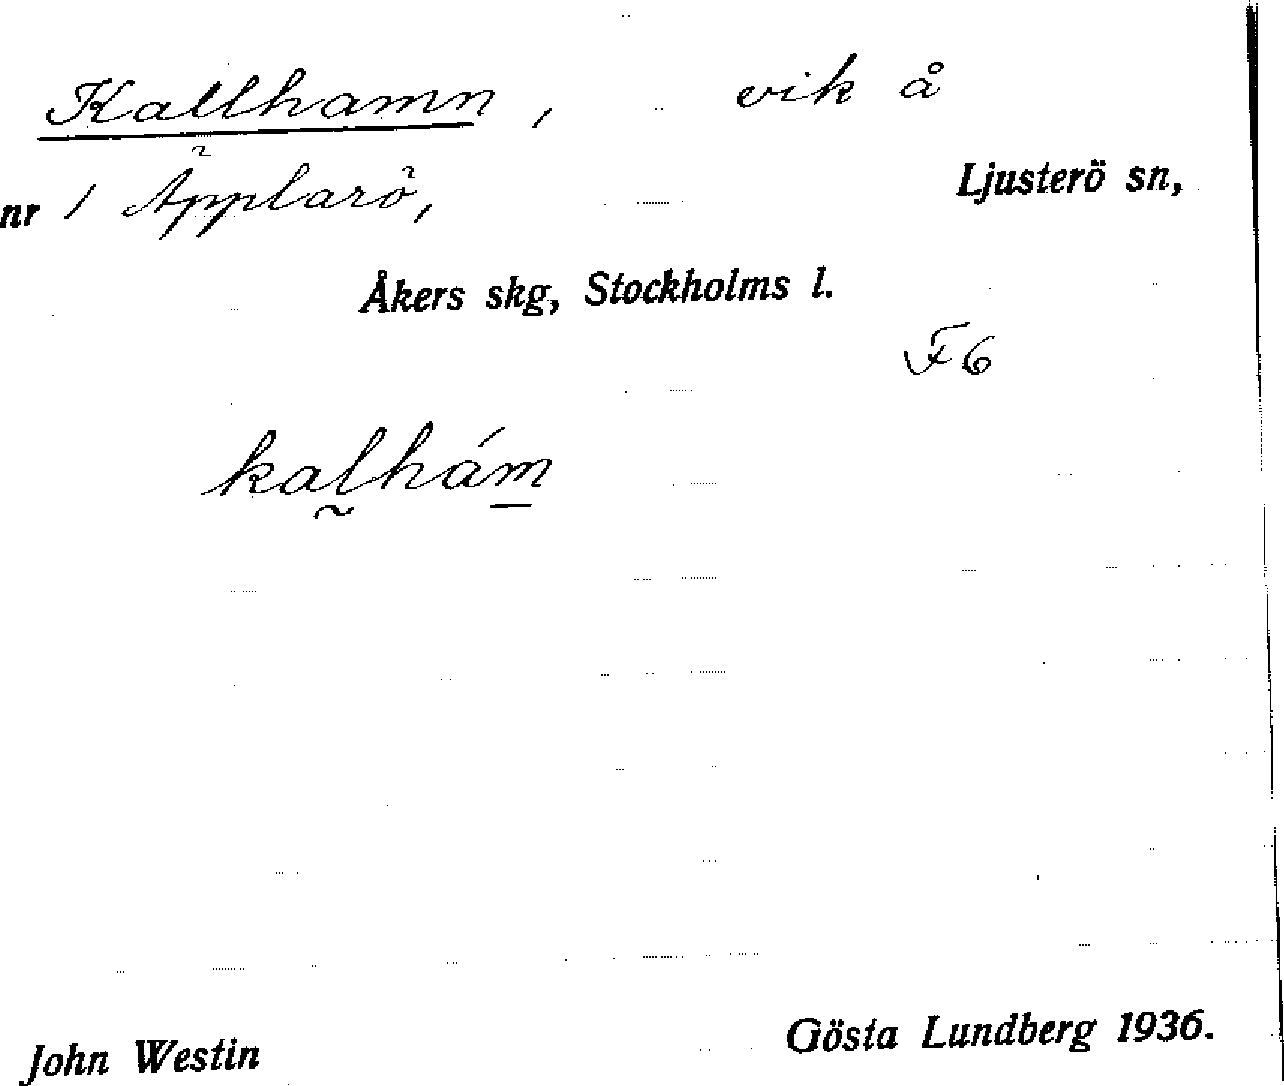 Kallhamn, vik å
nr 1 Äpplarö, Ljusterö sn,
Åkers skg, Stockholms l.
F6
kal̰hám̲
John Westin Gösta Lundberg 1936.